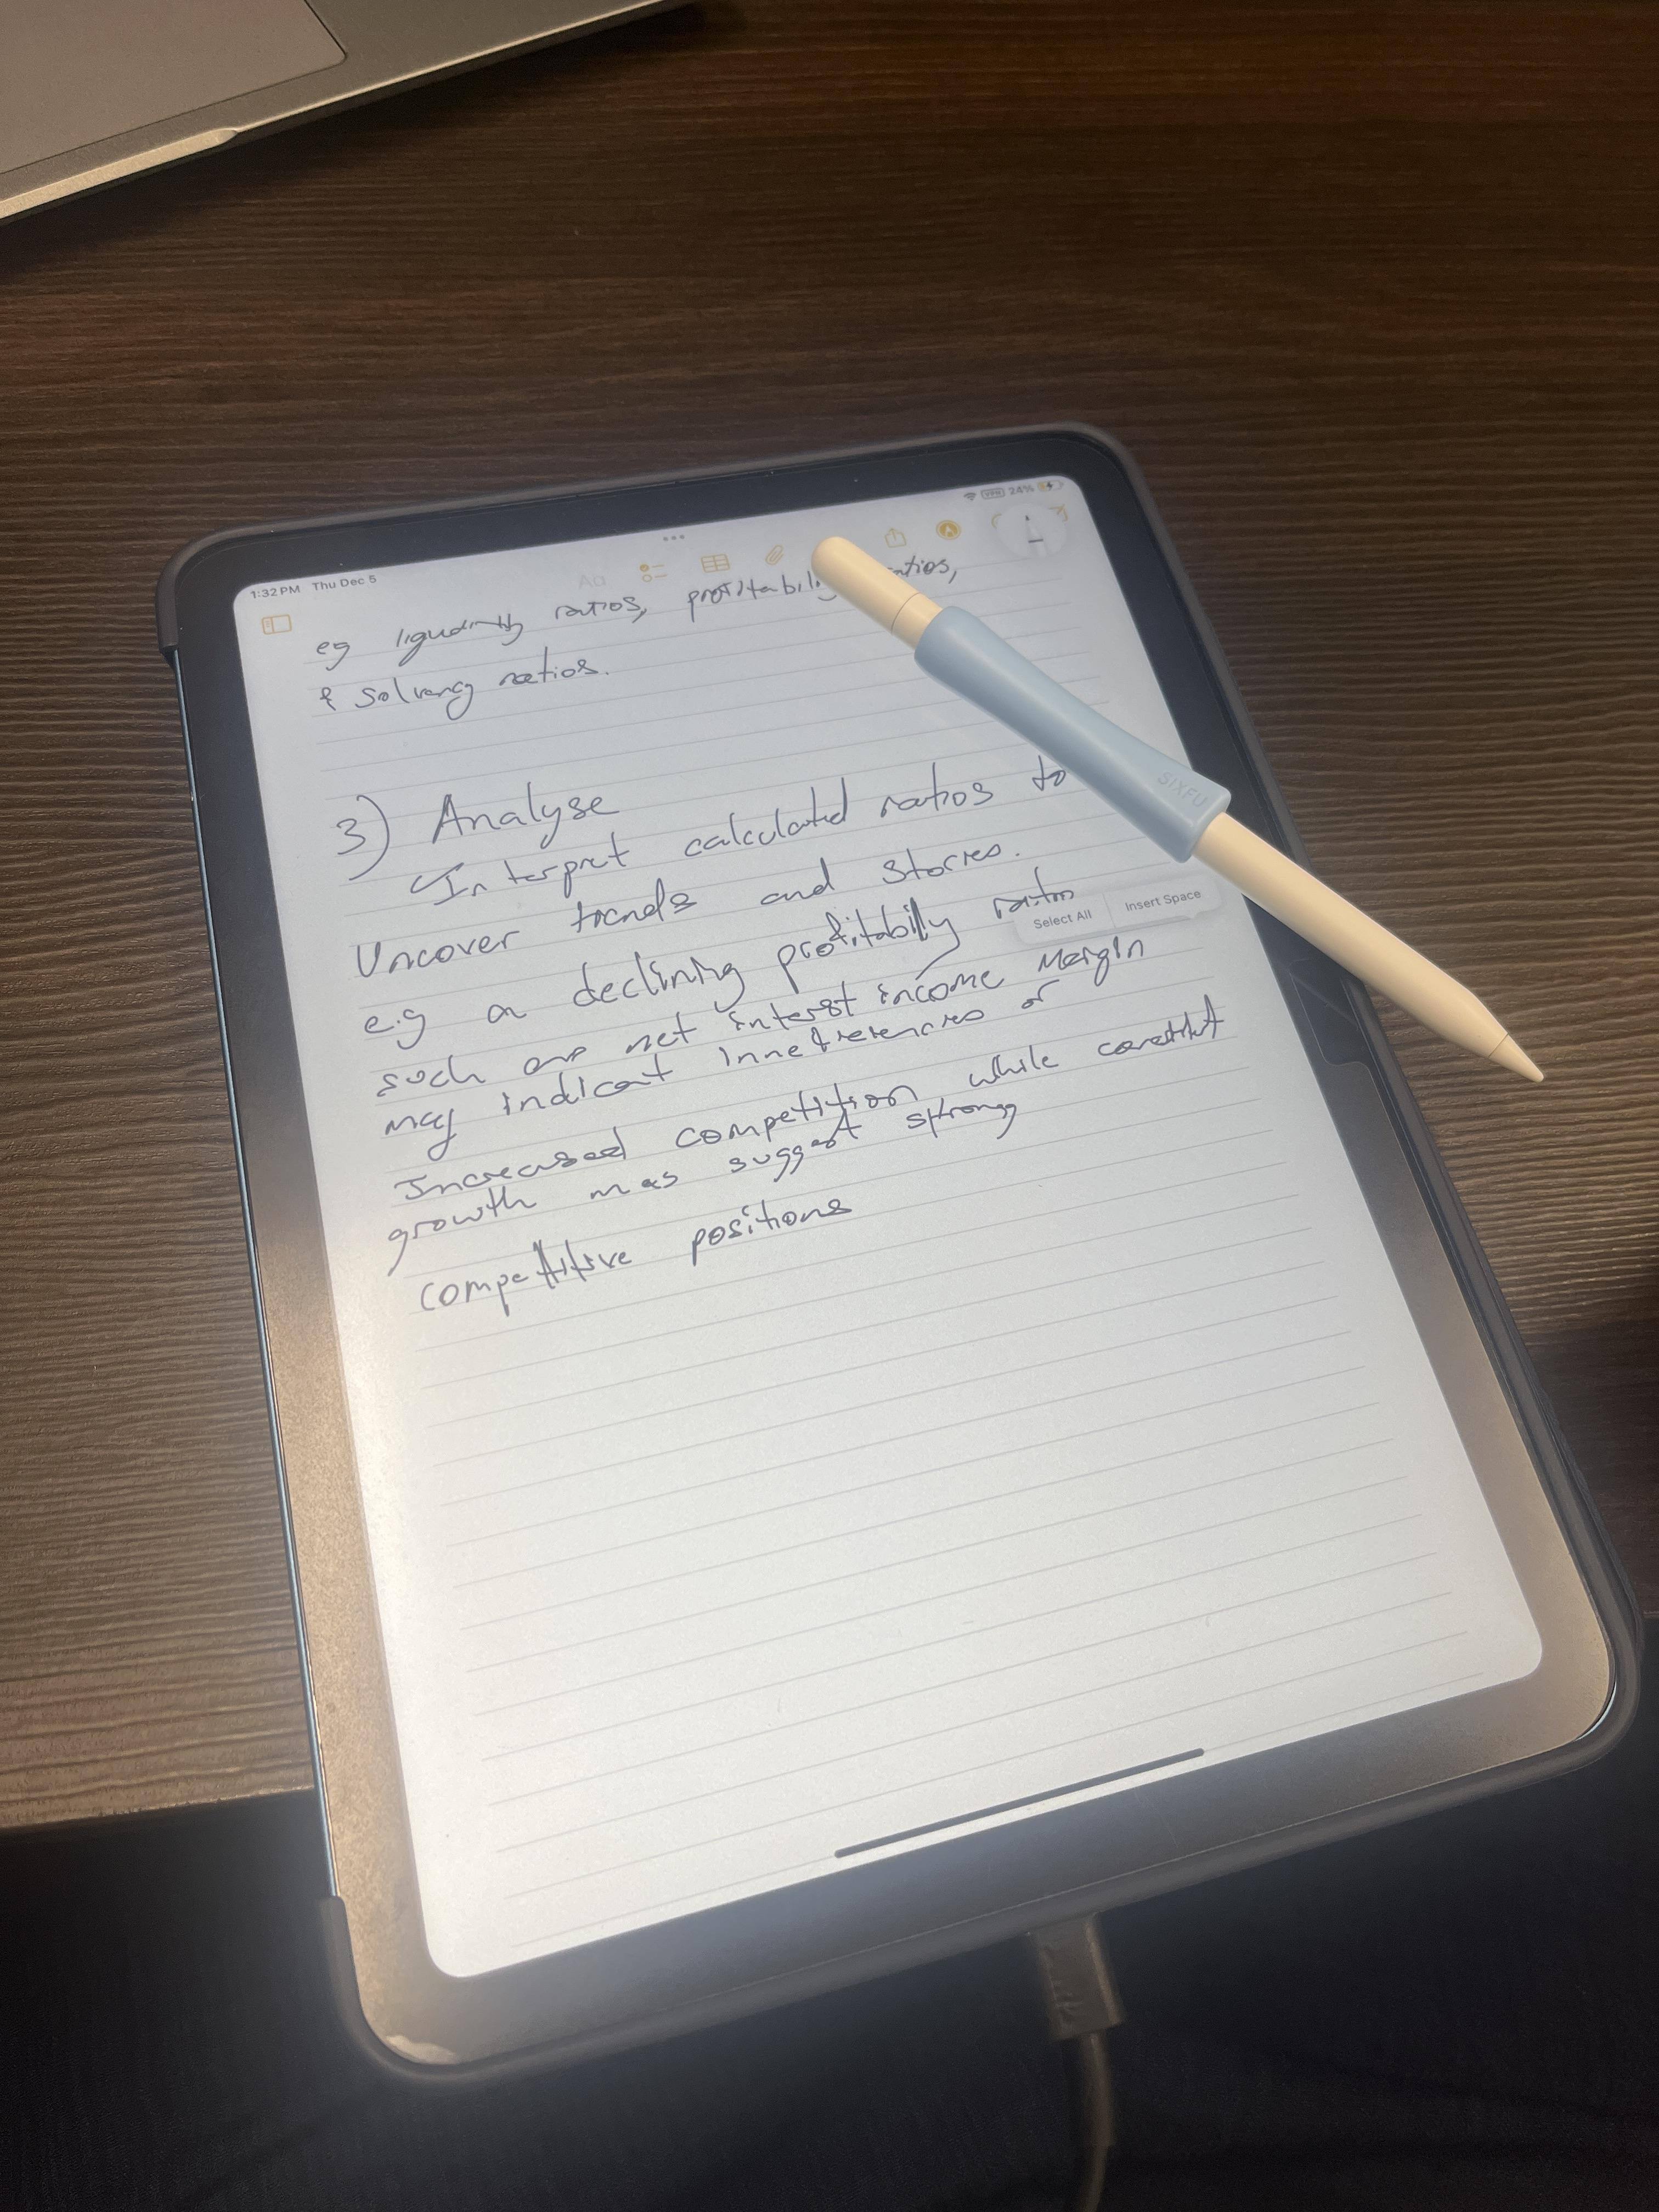 1:32 PM Thu Dec 5
VPN 24%
Aa
eg liquidity ratios, profitability ratios,
& solvency ratios.
3) Analyse
Interpret calculated ratios to
Uncover trends and stories.
e.g a declining profitabily ratio
Select All Insert Space
such as net interest income Margin
may indicat or
Increased competition while
growth mas suggest strong
competitive positions
SIXFU